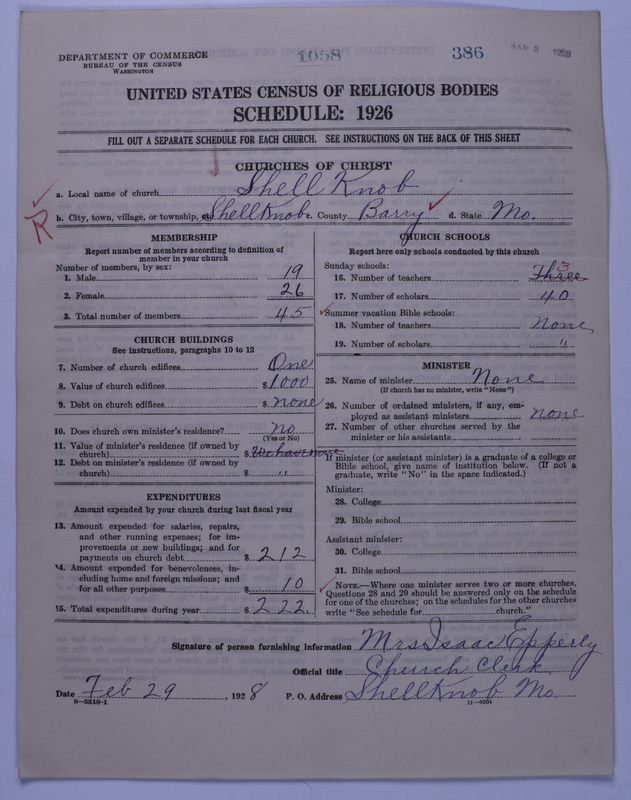 DEPARTMENT OF COMMERCE
BUREAU OF THE CENSUS
WASHINGTON
1058
386
MAR 5
UNITED STATES CENSUS OF RELIGIOUS BODIES
SCHEDULE: 1926
FILL OUT A SEPARATE SCHEDULE FOR EACH CHURCH. SEE INSTRUCTIONS ON THE BACK OF THIS SHEET
CHURCHES OF CHRIST
a. Local name of church Shell Knob
R
b. City, town, village, or township, etc Shell Knob c. County Barry d. State Mo.
MEMBERSHIP
Report number of members according to definition of
member in your church
Number of members, by sex:
1. Male 19
2. Female 26
3. Total number of members 45
CHURCH BUILDINGS
See instructions, paragraphs 10 to 12
7. Number of church edifices One
8. Value of church edifices $ 1000
9. Debt on church edifices $ none
10. Does church own minister's residence? No
(Yes or No)
11. Value of minister's residence (if owned by
church) $ We have none
12. Debt on minister's residence (if owned by
church) $ "
EXPENDITURES
Amount expended by your church during last fiscal year
13. Amount expended for salaries, repairs,
and other running expenses; for im-
provements or new buildings; and for
payments on church debt $ 212
14. Amount expended for benevolences, in-
cluding home and foreign missions; and
for all other purposes $ 10
15. Total expenditures during year $ 222
CHURCH SCHOOLS
Report here only schools conducted by this church
Sunday schools:
16. Number of teachers Three 3
17. Number of scholars 40
Summer vacation Bible schools:
18. Number of teachers None
19. Number of scholars "
MINISTER
25. Name of minister None
(If church has no minister, write "None")
26. Number of ordained ministers, if any, em-
ployed as assistant ministers none
27. Number of other churches served by the
minister or his assistants
If minister (or assistant minister) is a graduate of a college or
Bible school, give name of institution below. (If not a
graduate, write "No" in the space indicated.)
Minister:
28. College
29. Bible school
Assistant minister:
30. College
31. Bible school
NOTE.—Where one minister serves two or more churches,
Questions 28 and 29 should be answered only on the schedule
for one of the churches; on the schedules for the other churches
write "See schedule for church."
Signature of person furnishing information Mrs Isaac Epperly
Official title Church Clerk
Date Feb 29, 1928 P. O. Address Shell Knob Mo.
8—5518-1
11—9204